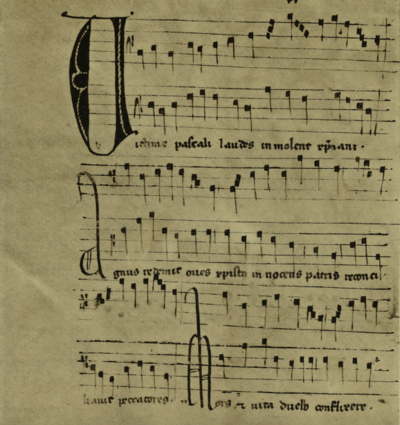 Victime pascali laudes inmolent xpiani.
Agnus redemit oves xpistus in nocens patris reconci
liavit peccatores. Mors et vita duello conflixere.